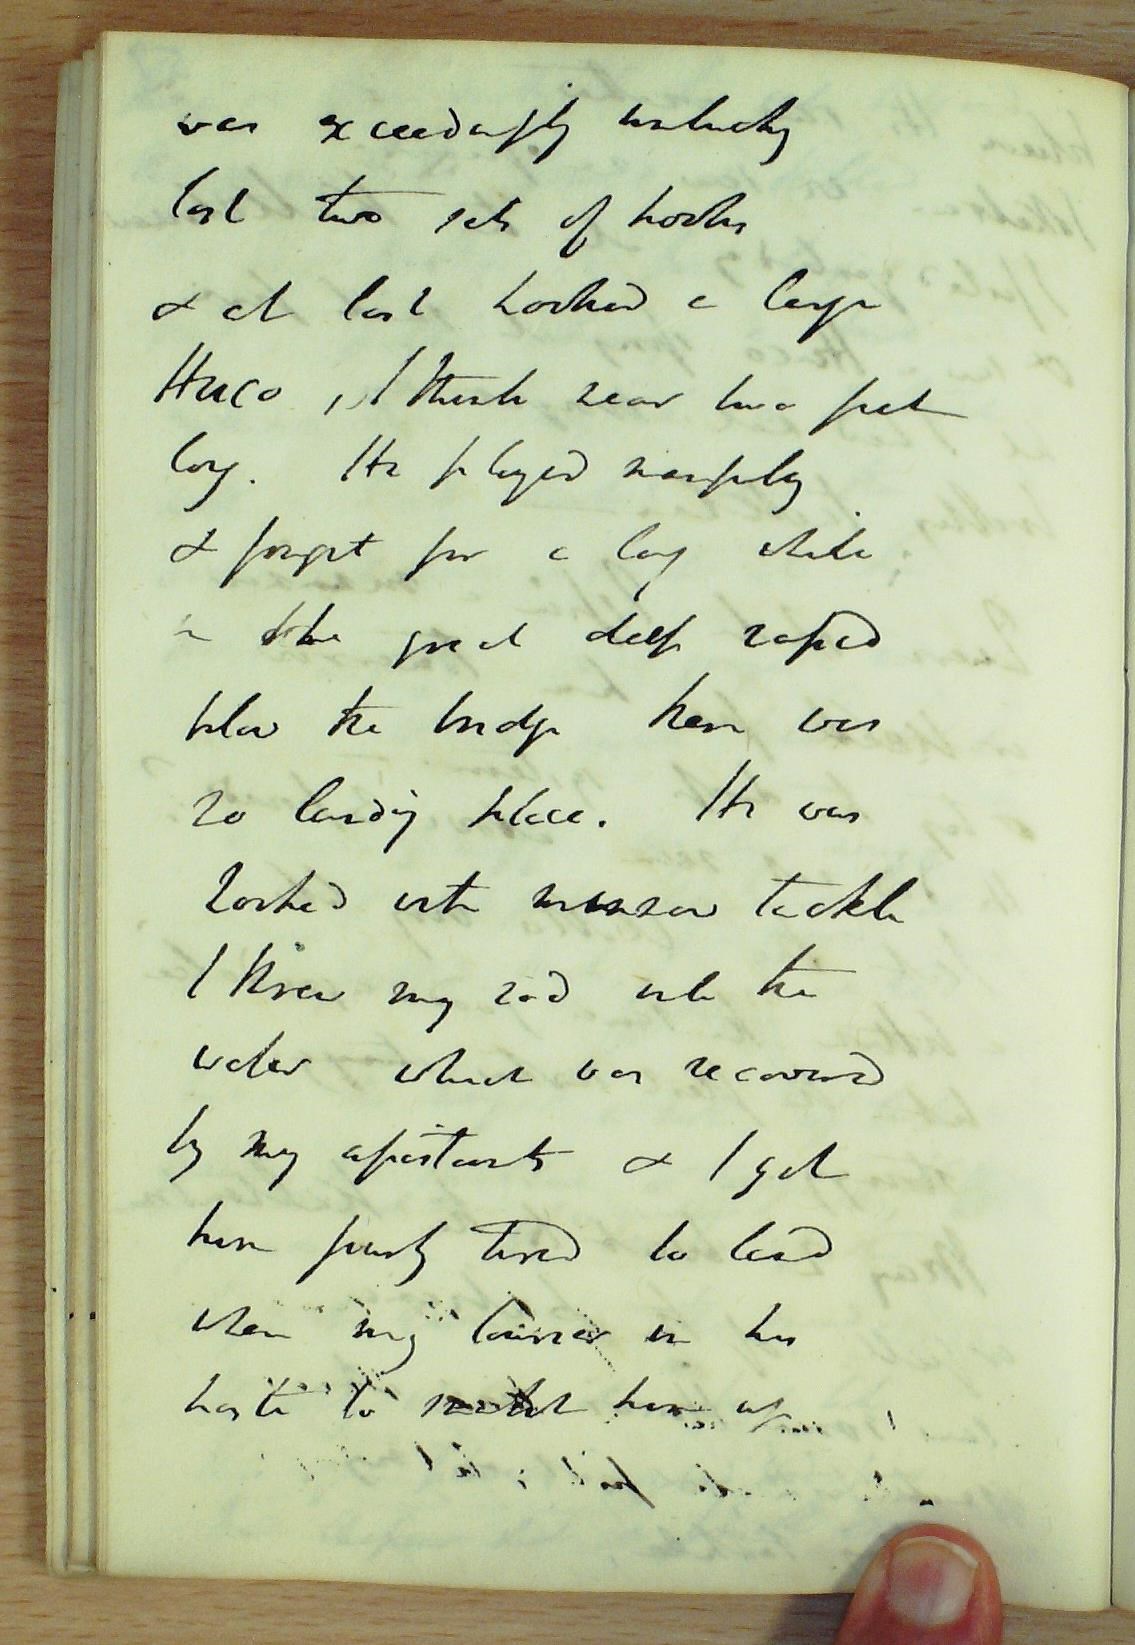 was exceedingly unlucky
lost two sets of hooks
& at last hooked a large
Huco, I think near two feet
long. He played nimbly
& fought for a long while
in the great deep rapid
below the bridge there was
no landing place. He was
hooked with minnow tackle
I threw my rod into the
water which was recovered
by my assistants & I got
him fairly tired to land
when my in his
haste to him up